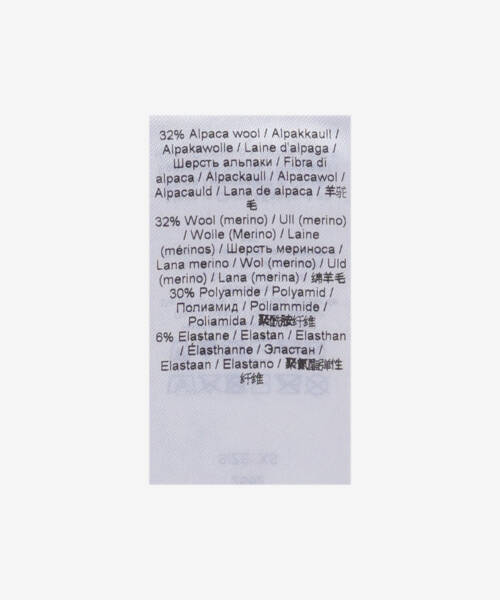 32% Alpaca wool / Alpakkaull /
Alpakawolle / Laine d'alpaga /
Шерсть альпаки / Fibra di
alpaca / Alpackaull / Alpacawol /
Alpacauld / Lana de alpaca / 羊驼
毛
32% Wool (merino) / Ull (merino)
/ Wolle (Merino) / Laine
(mérinos) / Шерсть мериноса /
Lana merino / Wol (merino) / Uld
(merino) / Lana (merina) / 绵羊毛
30% Polyamide / Polyamid /
Полиамид / Poliammide /
Poliamida / 聚酰胺纤维
6% Elastane / Elastan / Elasthan
/ Élasthanne / Эластан /
Elastaan / Elastano / 聚氨酯弹性
纤维